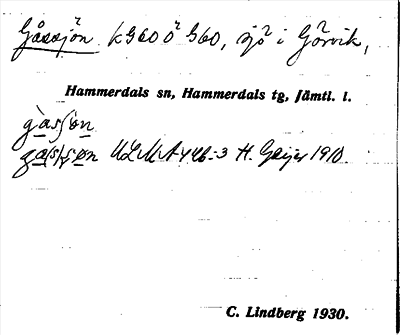 Gåssjön kG60Ö G60, sjö i Görvik,
Hammerdals sn, Hammerdals tg, Jämtl. l.
gasʃøn
ga(s)ʃøn ULMA 446:3 H. Geijer 1910
C. Lindberg 1930.